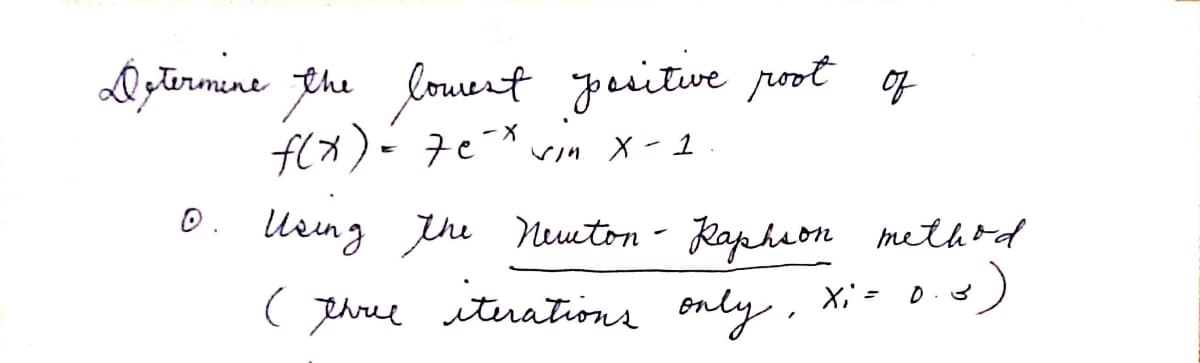 Determine the lowest positive root of
f(x) = 7e^-x sin x - 1.
⊙. Using the Newton - Raphson method
( three iterations only, xi = 0.3)